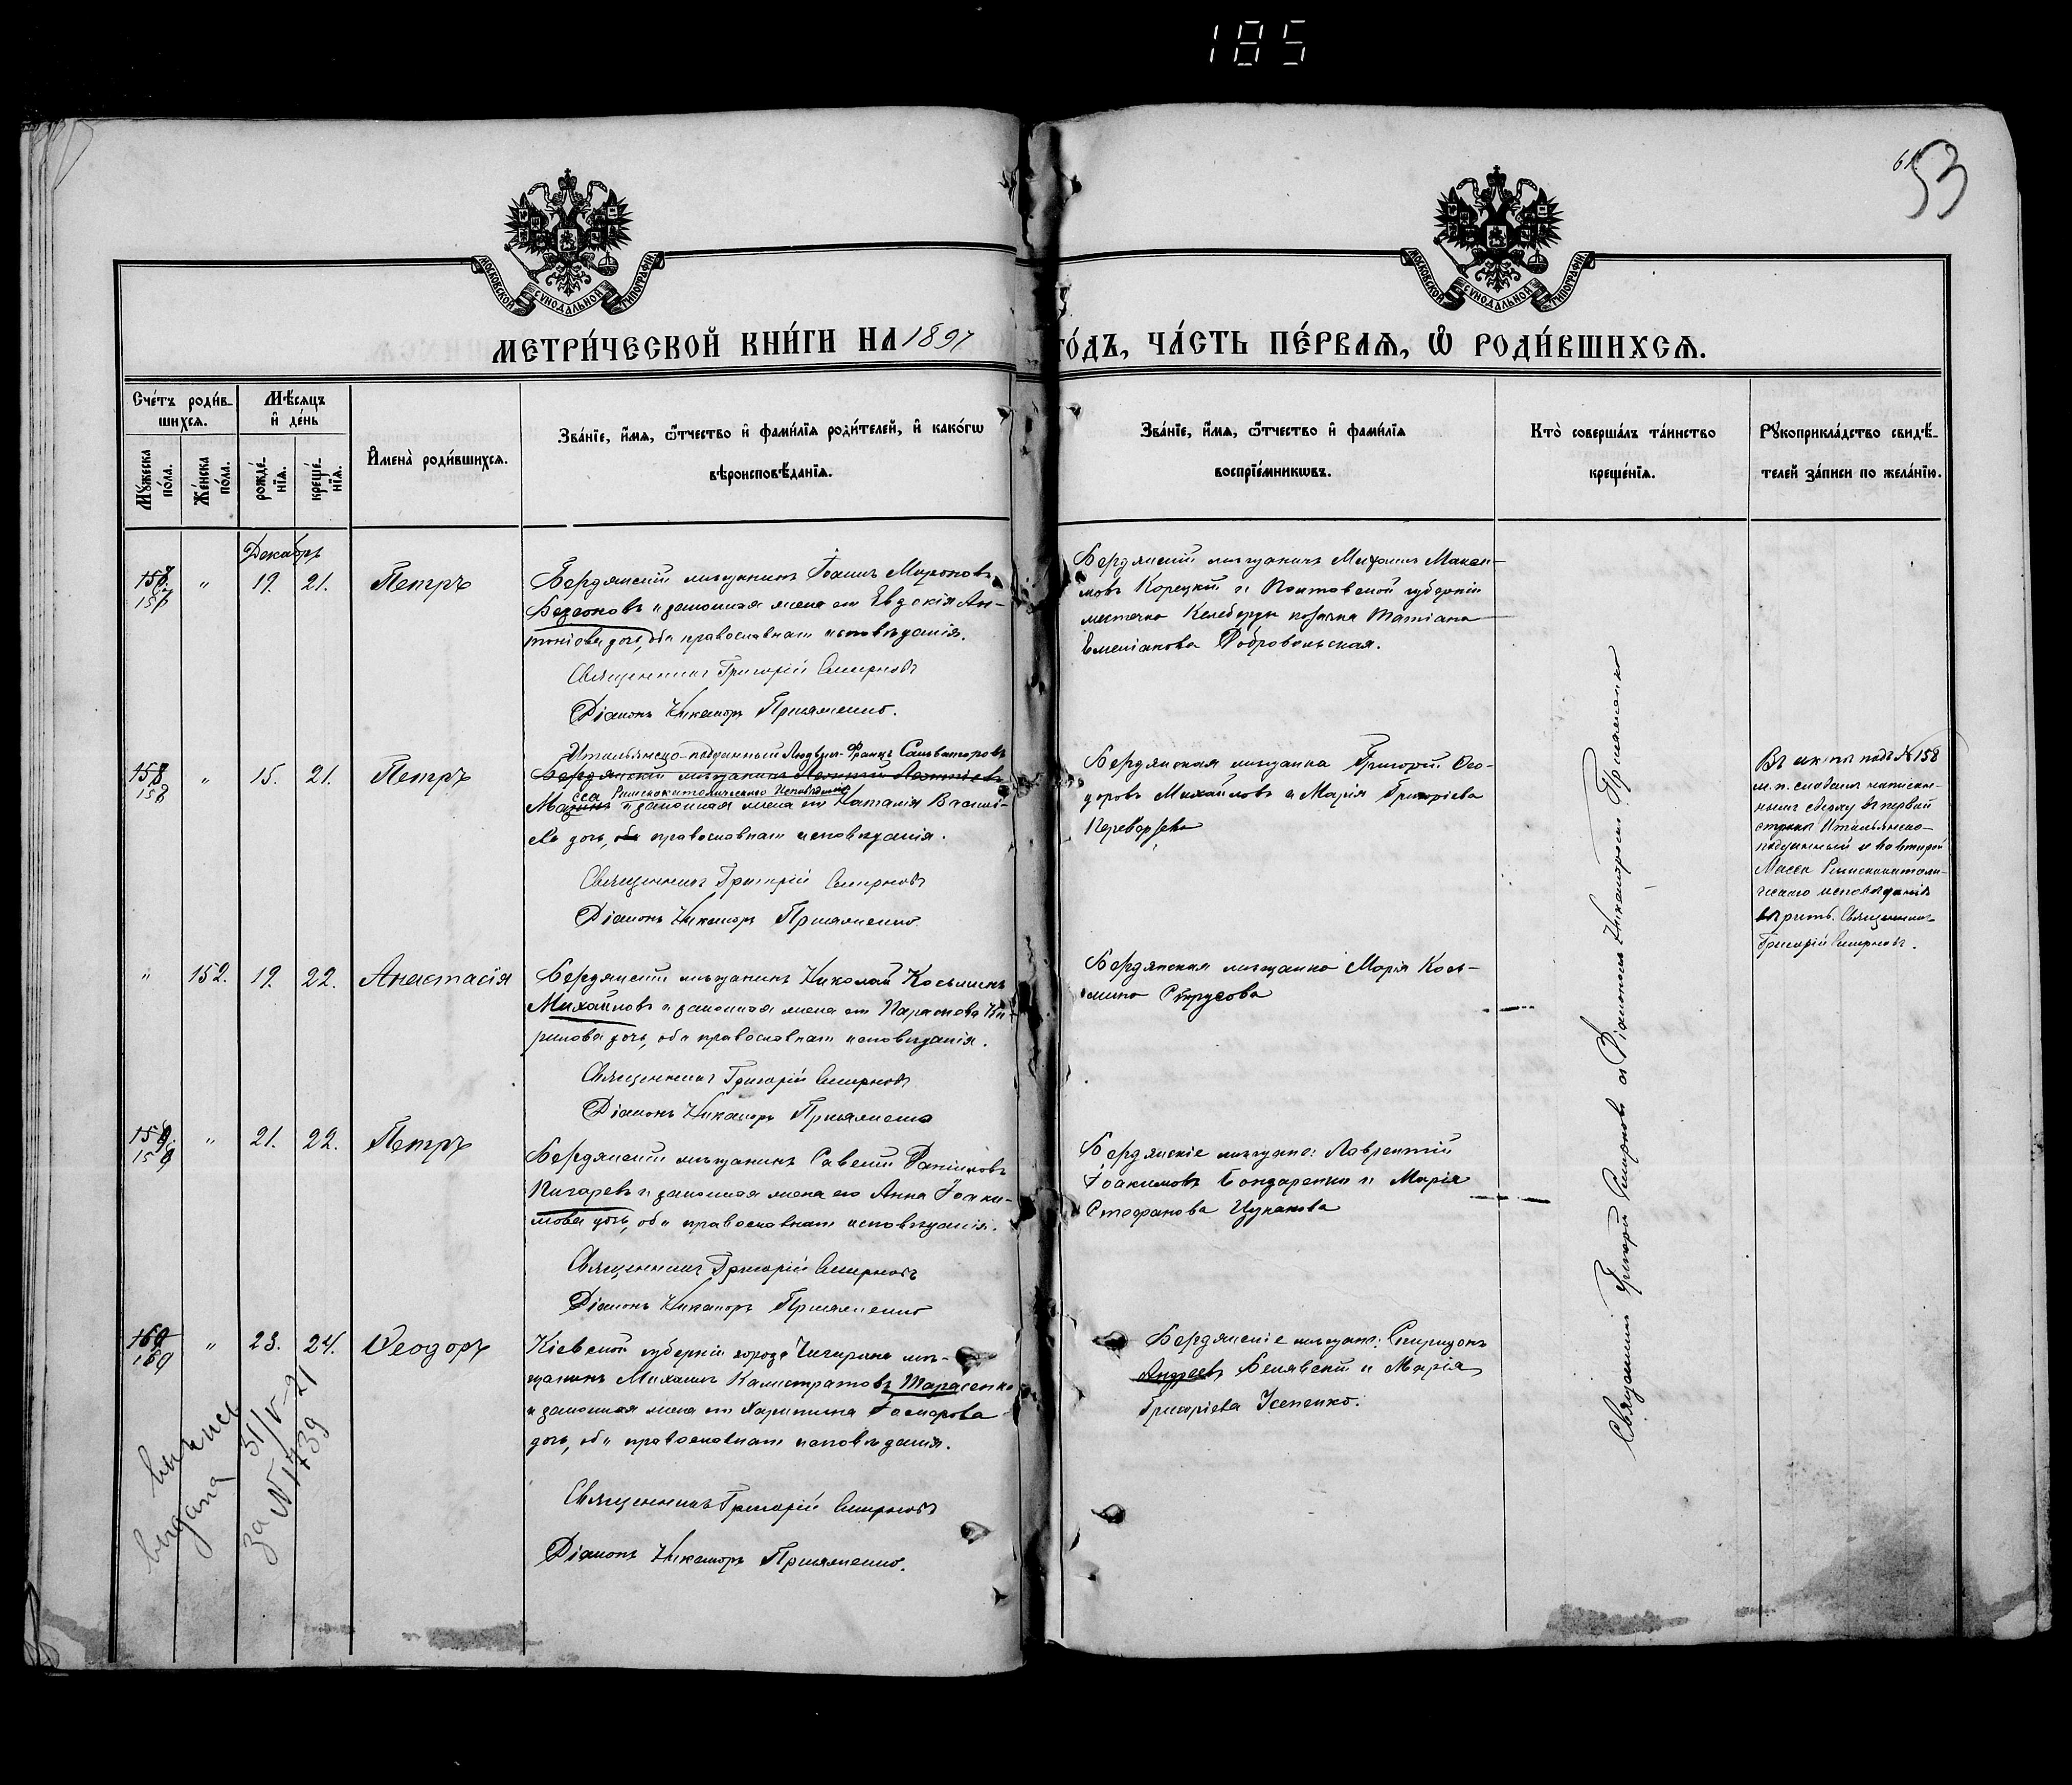 185
61
53
МОСКОВСКОЙ СѴНОДАЛЬНОЙ ТИПОГРАФІИ
МОСКОВСКОЙ СѴНОДАЛЬНОЙ ТИПОГРАФІИ
МЕТРИ́ЧЕСКОЙ КНИ́ГИ НА 1897
ГО́ДЪ, ЧА́СТЬ ПЕ́РВАѦ, Ѡ РОДИ́ВШИХСѦ.
Сче́тъ роди́в-
шихсѧ.
Мꙋ́жеска по́ла.
Же́нска по́ла.
Мѣ́сѧцъ
и҆ де́нь
рожде́-
нїѧ.
креще́-
нїѧ.
И҆мена̀ роди́вшихсѧ.
Зва́нїе, и҆́мѧ, ѻ҆́тчество и҆ фами́лїѧ роди́телей, и҆ како́гѡ
вѣроисповѣ́данїѧ.
Зва́нїе, и҆́мѧ, ѻ҆́тчество и҆ фами́лїѧ
воспрїе́мникѡвъ.
Кто̀ соверша́лъ та́инство
креще́нїѧ.
Рꙋкоприкла́дство свидѣ́-
телей за́писи по жела́нїю.
Декабрь
157 " 19. 21. Петръ
Бердянскій мѣщанинъ Іоаннъ Мироновъ
Безсоновъ и законная жена его Евдокія Ан-
тоніева дочь, оба православнаго исповѣданія.
Священникъ Григорій Смирновъ
Діаконъ Никаноръ Прияменко.
Бердянскій мѣщанинъ Михаилъ Макси-
мовъ Корецкій и Полтавской губерніи
мѣстечка Келеберды козачка Татіана
Емеліанова Добровольская.
158 " 15. 21. Петръ
Итальянско-подданный Людвигъ-Францъ Сальваторовъ
Бердянскій мѣщанинъ Леонтій Леонтіевъ
сса Римскокатолическаго Исповѣданія
Мазинъ и законная жена его Наталія Василі-
ева дочь, оба православнаго исповѣданія.
Священникъ Григорій Смирновъ
Діаконъ Никаноръ Прияменко.
Бердянская мѣщанка Григорій Ѳео-
доровъ Михайловъ и Марія Григоріева
Переверзева
Въ актѣ подъ №158
м.п. сладомъ написан-
нымъ сверху въ первой
строкѣ Итальянско-
подданный и во второй
Масса Римскокатоли-
ческаго исповѣданія
вѣрить. Священникъ
Григорій Смирновъ.
" 152. 19. 22. Анастасія
Бердянскій мѣщанинъ Николай Косьминъ
Михайловъ и законная жена его Параскева Ки-
рилова дочь, оба православнаго исповѣданія.
Священникъ Григорій Смирновъ
Діаконъ Никаноръ Прияменко
Бердянская мѣщанка Марія Кось-
мина Струсова
159 " 21. 22. Петръ
Бердянскій мѣщанинъ Савелій Даніиловъ
Пигаревъ и законная жена его Анна Іоаки-
мова дочь, оба православнаго исповѣданія.
Священникъ Григорій Смирновъ
Діаконъ Никаноръ Прияменко
Бердянскіе мѣщане: Лаврентій
Іоакимовъ Бондаренко и Марія
Стефанова Цуканова
160 " 23. 24. Ѳеодоръ
160
Кіевской губерніи города Чигирина мѣ-
щанинъ Михаилъ Калистратовъ Тарасенко
и законная жена его Харитина Гаспарова
дочь, оба православнаго исповѣданія.
Священникъ Григорій Смирновъ
Діаконъ Никаноръ Прияменко.
Бердянскіе мѣщане: Спиридонъ
Андреевъ Белявскій и Марія
Григоріева Усепенко.
Священникъ Григорій Смирновъ съ Діакономъ Никаноромъ Прияменко
выпись
выдана 31/V-21
за №1739